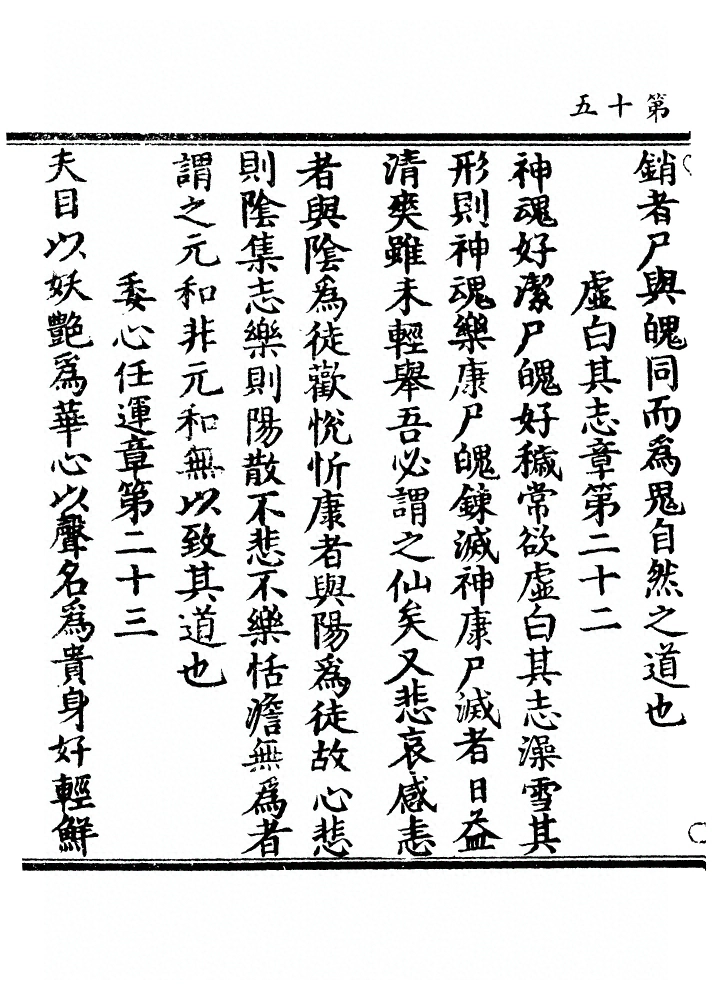 第十五
銷者尸與魄同而爲鬼自然之道也
虛白其志章第二十二
神魂好潔尸魄好穢常欲虛白其志澡雪其
形則神魂樂康尸魄鍊滅神康尸滅者日益
清爽雖未輕舉吾必謂之仙矣又悲哀感恚
者與陰爲徒歡悅忻康者與陽爲徒故心悲
則陰集志樂則陽散不悲不樂恬澹無爲者
謂之元和非元和無以致其道也
委心任運章第二十三
夫目以妖艷爲華心以聲名爲貴身好輕鮮